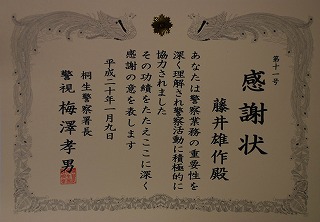 第十一号
感謝状
藤井雄作殿
あなたは警察業務の重要性を
深く理解され警察活動に積極的に
協力されました
その功績をたたえここに深く
感謝の意を表します
平成二十年一月九日
桐生警察署長
警視 梅澤孝男